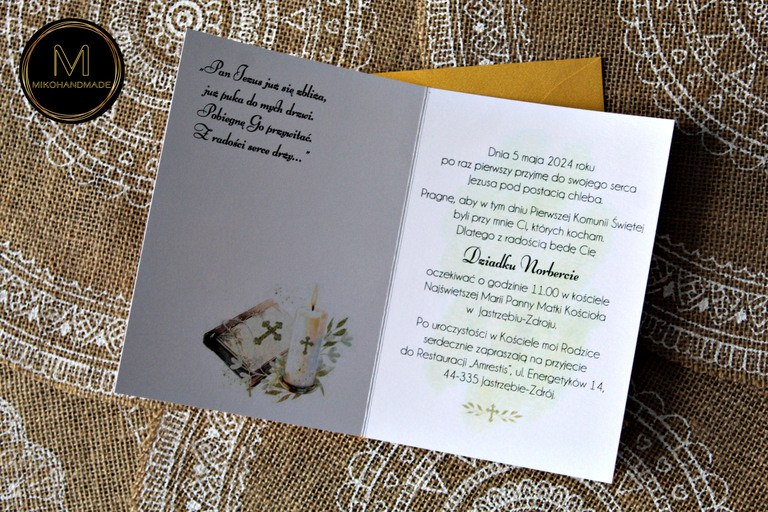 M
MIKOHANDMADE
„Pan Jezus już się zbliża,
już puka do mych drzwi.
Pobiegnę Go przywitać.
Z radości serce drży..."
Dnia 5 maja 2024 roku
po raz pierwszy przyjmę do swojego serca
Jezusa pod postacią chleba.
Pragnę, aby w tym dniu Pierwszej Komunii Świętej
byli przy mnie Ci, których kocham.
Dlatego z radością będę Cię
Dziadku Norbercie
oczekiwać o godzinie 11.00 w kościele
Najświętszej Marii Panny Matki Kościoła
w Jastrzębiu-Zdroju.
Po uroczystości w Kościele moi Rodzice
serdecznie zapraszają na przyjęcie
do Restauracji „Amrestis", ul. Energetyków 14,
44-335 Jastrzębie-Zdrój.